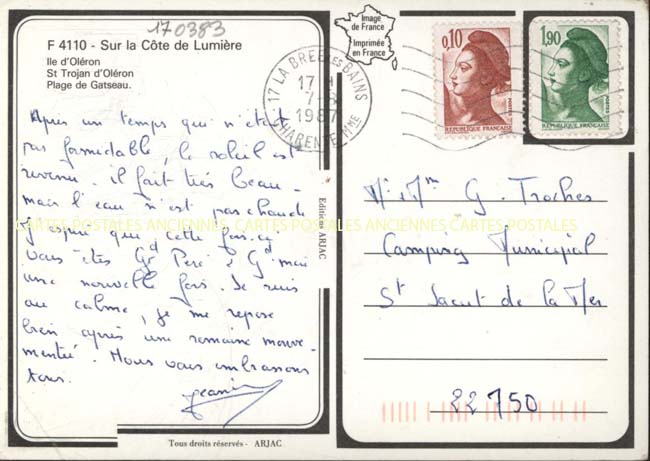 170383
F 4110 - Sur la Côte de Lumière
Ile d'Oléron
St Trojan d'Oléron
Plage de Gatseau.
Après un temps qui n'était
pas formidable, le soleil est
revenu. il fait très beau -
mais l'eau n'est pas chaude
j'espère que cette fois-ci
vous êtes Gd Père & Gd mai
une nouvelle fois. Je suis
au calme, je me repose
bien après une semaine mouve-
mentée. Nous vous embrassons
tous.
Jeanine
Tous droits réservés - ARJAC
Editions ARJAC
Image
de France
Imprimée
en France
17 LA BREE LES BAINS
17 H
7-8
1987
CHARENTE MME
0,10
REPUBLIQUE FRANÇAISE
POSTES
1,90
REPUBLIQUE FRANÇAISE
POSTES
Mr & Mme G. Troches
Camping Municipal
St Jacut de la Mer
22 750
CARTES POSTALES ANCIENNES CARTES POSTALES ANCIENNES CARTES POSTALES